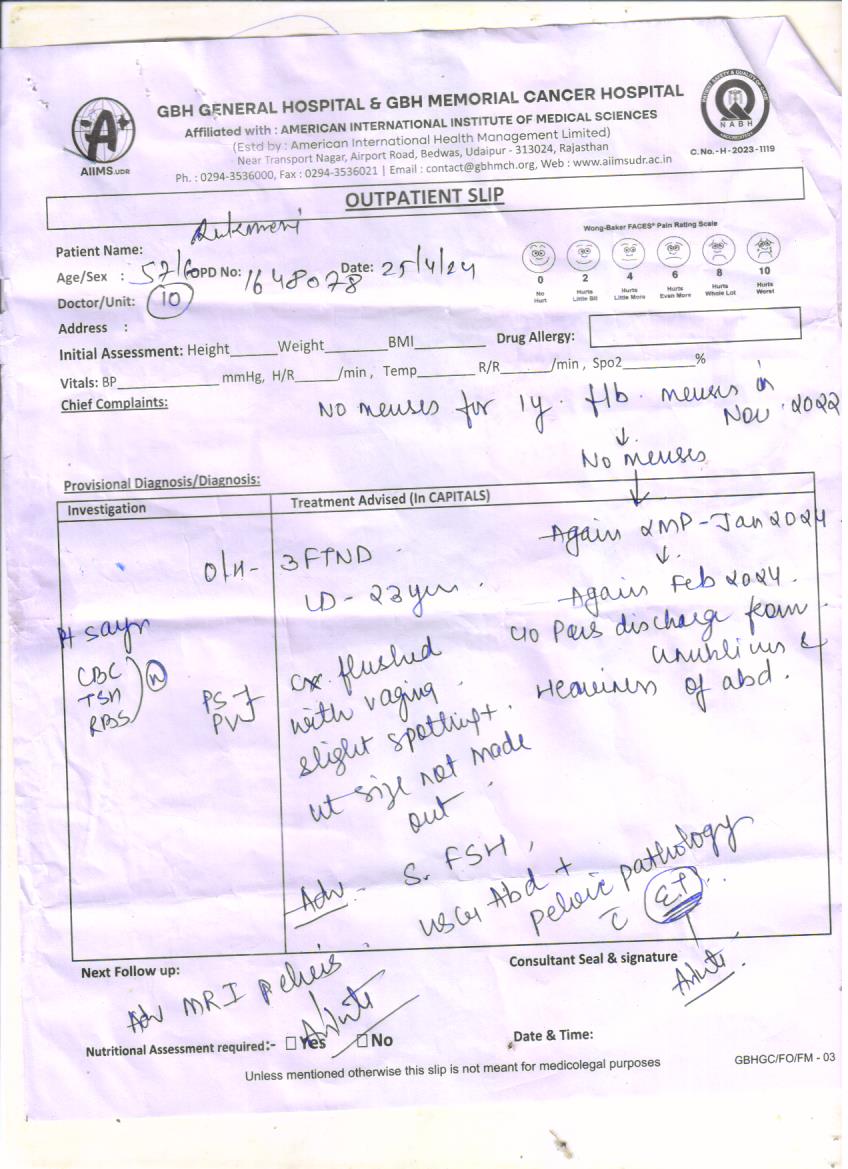 GBH GENERAL HOSPITAL & GBH MEMORIAL CANCER HOSPITAL
Affiliated with : AMERICAN INTERNATIONAL INSTITUTE OF MEDICAL SCIENCES
(Estd by : American International Health Management Limited)
Near Transport Nagar, Airport Road, Bedwas, Udaipur - 313024, Rajasthan
Ph. : 0294-3536000, Fax : 0294-3536021 | Email : contact@gbhmch.org, Web : www.aiimsudr.ac.in
AIIMS.UDR
NABH
C. No. - H - 2023 - 1119
OUTPATIENT SLIP
Patient Name:
Age/Sex : 57/ OPD No: 1648078 Date: 25/4/24
Doctor/Unit: 10
Address :
Wong-Baker FACES® Pain Rating Scale
0 2 4 6 8 10
No Hurt
Hurts Little Bit
Hurts Little More
Hurts Even More
Hurts Whole Lot
Hurts Worst
Initial Assessment: Height Weight BMI Drug Allergy:
Vitals: BP mmHg, H/R /min , Temp R/R /min , Spo2 %
Chief Complaints:
No menses for 1y. menses in
Nov. 2022
No menses
Provisional Diagnosis/Diagnosis:
Investigation
Treatment Advised (In CAPITALS)
Again LMP - Jan 2024
Again Feb 2024.
discharge from
&
Heaviness of abd.
O/H - 3 FTND
LD - 23 yrs.
CBC
TSH
RBS
PS
PV
Cx flushed
with vagina
slight spotting +.
ut size not made
out
Adv - S. FSH,
USG Abd +
pelvic pathology
c ET
Next Follow up:
Consultant Seal & signature
Adv MRI pelvis
Nutritional Assessment required:- Yes No
Date & Time:
Unless mentioned otherwise this slip is not meant for medicolegal purposes
GBHGC/FO/FM - 03